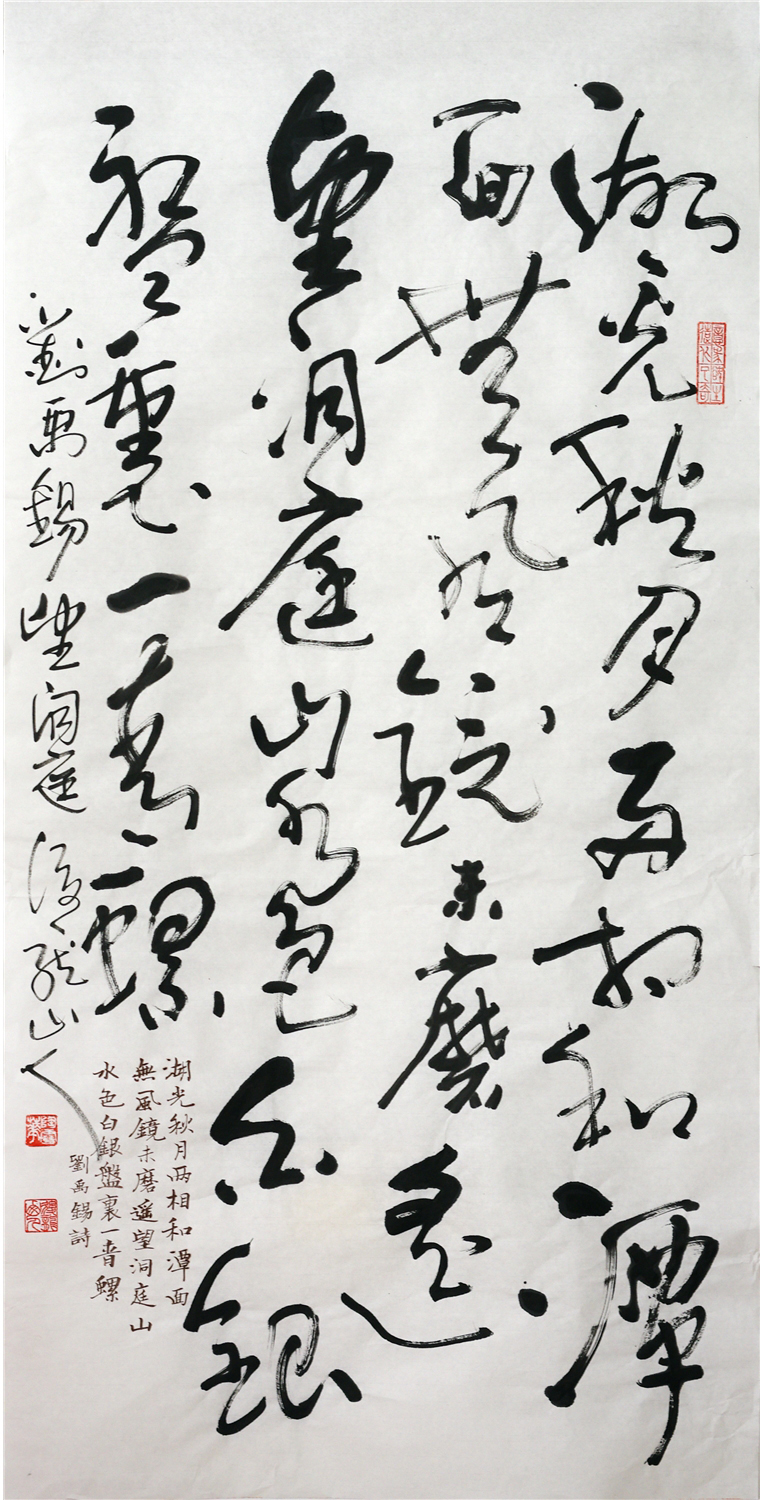 湖光秋月兩相和潭
面無風鏡未磨遙
望洞庭山水色白銀
盤裏一青螺
劉禹錫望洞庭 龍山人
湖光秋月兩相和潭面
無風鏡未磨遙望洞庭山
水色白銀盤裏一青螺
劉禹錫詩